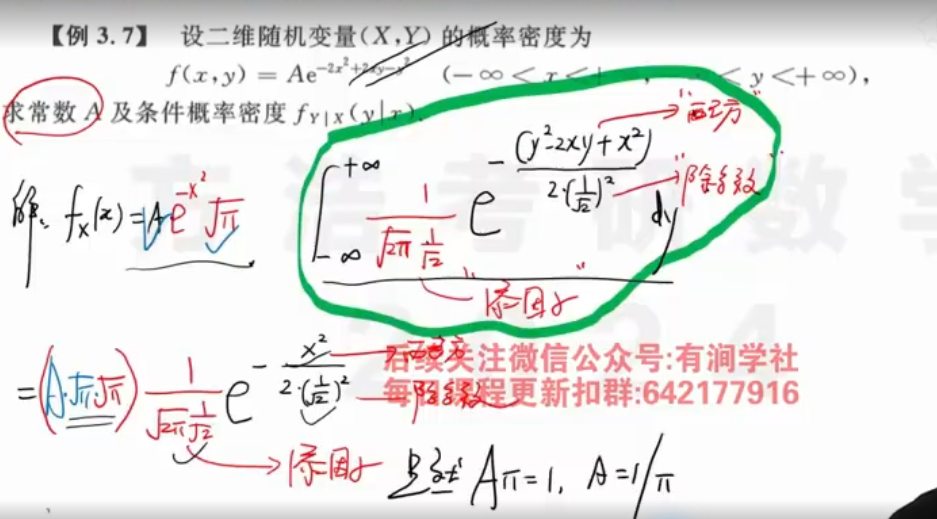 【例 3.7】 设二维随机变量(X,Y)的概率密度为
f(x,y) = Ae^{-2x²+2xy-y²} (-∞ < x < +∞, < y < +∞),
求常数 A 及条件概率密度 f_{Y|X}(y|x).
解: f_X(x) = A e^{-x²} √π ∫_{-∞}^{+∞} 1/(√2π 1/√2) e^{-(y²-2xy+x²)/(2·(1/√2)²)} dy
"配方"
"除系数"
"添因子"
= (A·√π·√π) 1/(√2π 1/√2) e^{-x²/(2·(1/√2)²)}
配方
除系数
添因子
Aπ = 1, A = 1/π
后续关注微信公众号:有润学社
每日课程更新扣群:642177916
考研数学